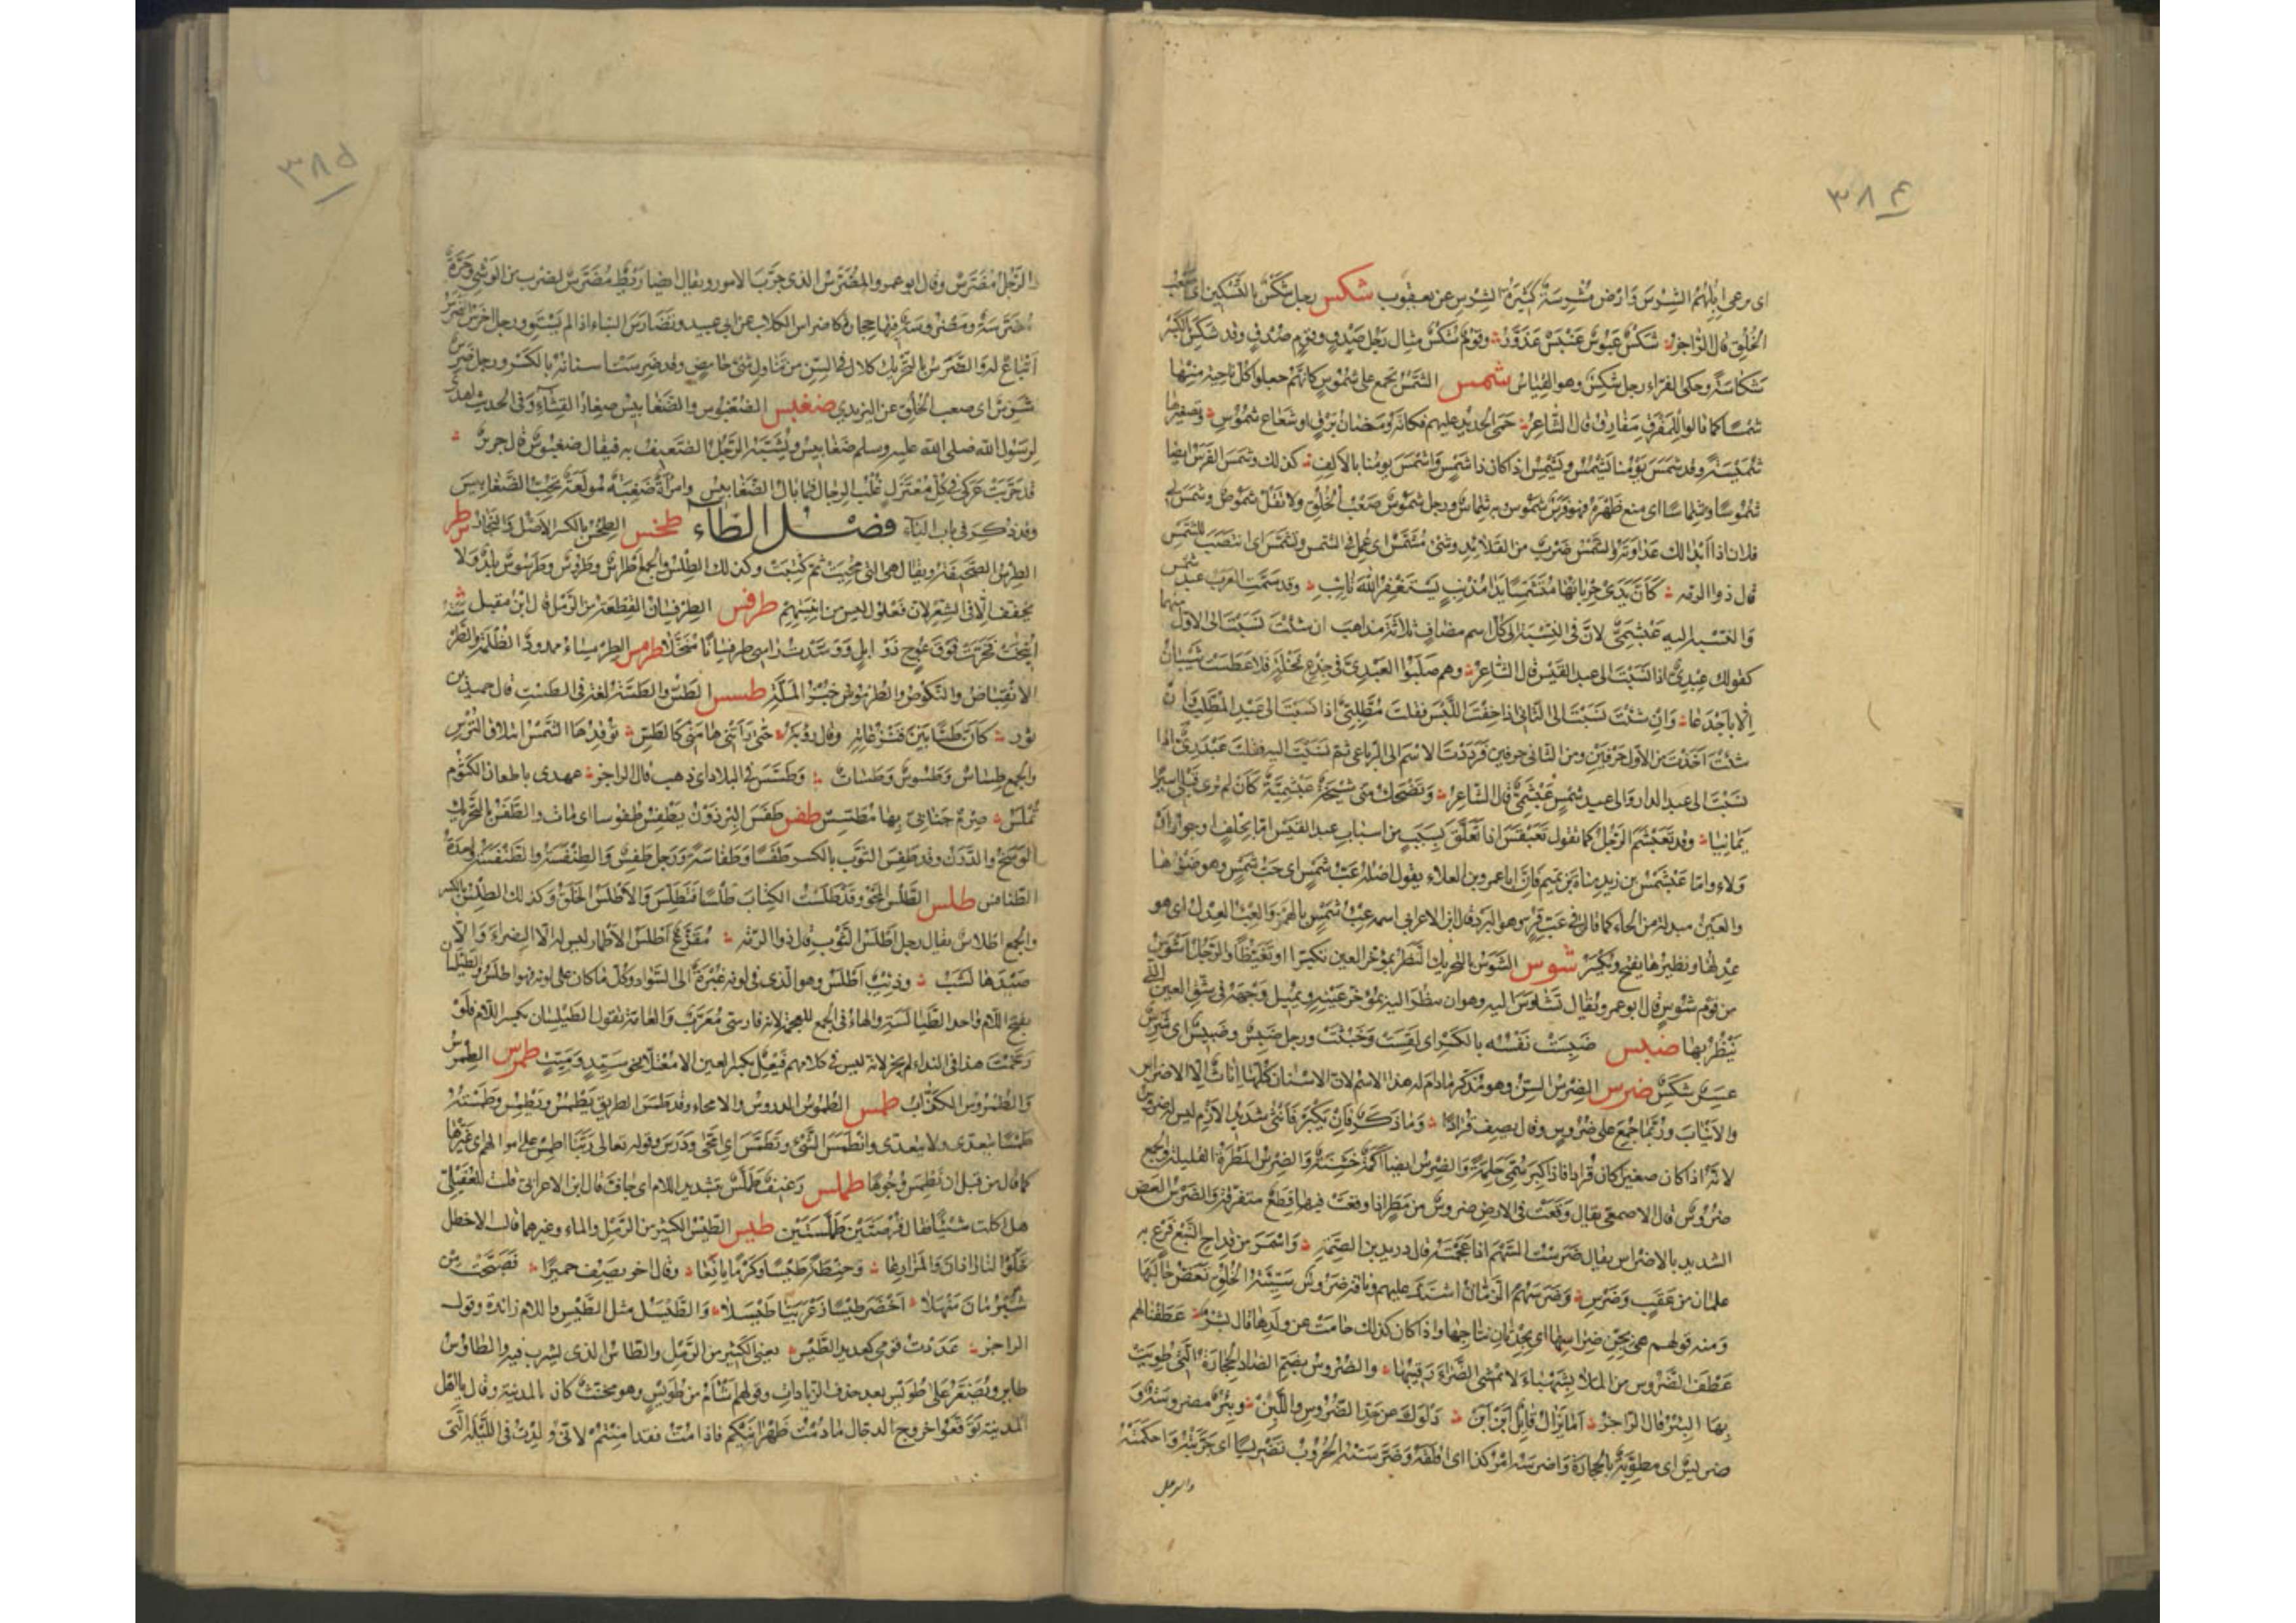 ٣٨٤
اى يرعى ابلهم الشرس وارض مشرسة كثيرة الشرس عن يعقوب شكس رجل شكس بالتسكين اى صعب
الخلق قال الراجز شكس عبوس عنبس عذور وقوم شكس مثال رجل صدق وقوم صدق وقد شكس بالكسر
شكاسة وحكى الفراء رجل شكس وهو القياس شمس الشمس يجمع على شموس كانهم جعلوا كل ناحية منها
شمسا كما قالوا للمفرق مفارق قال الشاعر حمى الحديد عليهم فكانه ومضان برق او شعاع شموس وتصغيرها
شميسة وقد شمس يومنا يشمس ويشمس اذا كان ذا شمس واشمس يومنا بالالف كذلك وشمس الفرس ايضا
شموسا وشماسا اى منع ظهره فهو فرس شموس به شماس ورجل شموس صعب الخلق ولا تقل شموص وشمس لى
فلان اذا ابدا لك عداوته والشمس ضرب من القلائد وشئ مشمس اى عمل فى الشمس وتشمس اى انتصب للشمس
قال ذو الرمة كان يدى حربائها متشمسا يدا مذنب يستغفر الله تائب وقد سمت العرب عبد شمس
والنسبة اليه عبشمى لان فى النسبة الى كل اسم مضاف ثلاثة مذاهب ان شئت نسبت الى الاول منهما
كقولك عبدى اذا نسبت الى عبد القيس قال الشاعر وهم صلبوا العبدى فى جذع نخلة فلا عطست شيبان
الا باجدعا وان شئت نسبت الى الثانى اذا خفت اللبس فقلت مطلبى اذا نسبت الى عبد المطلب وان
شئت اخذت من الاول حرفين ومن الثانى حرفين فرددت الاسم الى الرباعى ثم نسبت اليه فقلت عبدرى اذا
نسبت الى عبد الدار والى عبد شمس عبشمى قال الشاعر وتضحك منى شيخة عبشمية كان لم ترى قبلى اسيرا
يمانيا وقد تعبشم الرجل كما تقول تعبقس اذا تعلق بسبب من اسباب عبد القيس اما بحلف او جوار او
ولاء واما عبشمس بن زيد مناة بن تميم فان ابا عمرو بن العلاء يقول اصله عب شمس اى حب شمس وهو ضوؤها
والعين مبدلة من الحاء كما قال فى عب قر وهو البرد قال ابن الاعرابى اسمه عبء شمس بالهمز والعبء العدل اى هو
عدلها ونظيرها يفتح ويكسر شوس الشوس بالتحريك النظر بمؤخر العين تكبرا او تغيظا والرجل اشوس
من قوم شوس قال ابو عمرو يقال تشاوس اليه وهو ان ينظر اليه بمؤخر عينه ويميل وجهه فى شق العين التى
ينظر بها ضبس ضبست نفسه بالكسر اى لقست وخبثت ورجل ضبس وضبيس اى شرس
عسر شكس ضرس الضرس السن وهو مذكر مادام له هذا الاسم لان الاسنان كلها اناث الا الاضراس
والانياب وربما جمع على ضروس وقال يصف قرادا وما ذكر فان يكبر فانثى شديد الازم ليس له ضروس
لانه اذا كان صغيرا كان قرادا فاذا كبر سمى حلمة والضرس ايضا اكمة خشنة والضرس المطرة القليلة والجمع
ضروس قال الاصمعى يقال وقعت فى الارض ضروس من مطر اذا وقعت فيها قطع متفرقة والضرس العض
الشديد بالاضراس يقال ضرست السهم اذا عجمته قال دريد بن الصمة واسمر من قداح النبع فرع به
علمان من عقب وضرس وضرسهم الزمان اشتد عليهم وناقة ضروس سيئة الخلق تعض حالبها
ومنه قولهم هى بجن ضراسها اى بحدثان نتاجها واذا كان كذلك حامت عن ولدها قال بشر عطفنا لهم
عطف الضروس من الملا بشهباء لا يمشى الضراء رقيبها والضروس بضم الضاد الحجارة التى طويت
بها البئر قال الراجز اما يزال قائل ابن ابن دلوك عن حد الضروس واللبن وبئر مضروسة و
ضريس اى مطوية بالحجارة واضرسه امر كذا اى اقلقه وضرسته الحروب تضريسا اى جربته واحكمته
والرجل
٣٨٥
والرجل مضرس وقال ابو عمرو والمضرس الذى جرب الامور ويقال ايضا ريط مضرس لضرب من الوشى وحرة
مضرسة ومضروسة فيها حجارة كاضراس الكلاب عن ابى عبيد وتضارس البناء اذا لم يستو ورجل اخرس اضرس
اتباع له والضرس بالتحريك كلال فى السن من تناول شئ حامض وقد ضرست اسنانه بالكسر ورجل ضرس
شرس اى صعب الخلق عن اليزيدى ضغبس الضغبوس والضغابيس صغار القثاء وفى الحديث اهدى
لرسول الله صلى الله عليه وسلم ضغابيس ويشبه الرجل الضعيف به فيقال ضغبوس قال جرير
قد جربت عركى فى كل معترك غلب الرجال فما بال الضغابيس وامراة ضغبة مولعة بحب الضغابيس
وقد ذكر فى باب الباء فصل الطاء طخس الطخس بالكسر الاصل والنجار طرس
الطرس الصحيفة ويقال هى التى محيت ثم كتبت وكذلك الطلس والجمع اطراس وطروس وطرسوس بلد ولا
يخفف الا فى الشعر لان فعلول ليس من ابنيتهم طرفس الطرفسان القطعة من الرمل قال ابن مقبل
انيخت فخرت فوق عوج ذوابل ووسدت راسى طرفسانا منخلا طرمس الطرمساء ممدودا الظلمة والطرمسة
الانقباض والنكوص والطرموس خبز الملة طسس الطس والطسة لغة فى الطست قال حميد بن
ثور كان طسا بين قنزعاته وقال رؤبة حتى راتنى هامتى كالطس توقدها الشمس ائتلاق الترس
والجمع طساس وطسوس وطسات وطسس فى البلاد اى ذهب قال الراجز عهدى باظعان الكتوم
تملس صرم جنانى بها مطسس طفس طفس البرذون يطفس طفوسا اى مات والطفس بالتحريك
الوسخ والدرن وقد طفس الثوب بالكسر طفسا وطفاسة ورجل طفس والطنفسة والطنفسة واحدة
الطنافس طلس الطلس المحو وقد طلست الكتاب طلسا فتطلس والاطلس الخلق وكذلك الطلس بالكسر
والجمع اطلاس يقال رجل اطلس الثوب قال ذو الرمة مقزع اطلس الاطمار ليس له الا الضراء والا
صيدها نشب وذئب اطلس وهو الذى فى لونه غبرة الى السواد وكل ما كان على لونه فهو اطلس والطيلسان
بفتح اللام واحد الطيالسة والهاء فى الجمع للعجمة لانه فارسى معرب والعامة تقول الطيلسان بكسر اللام فلو
رخمت هذا فى النداء لم يجز لانه ليس فى كلامهم فيعل بكسر العين الا معتلا نحو سيد وميت طمرس الطمرس
والطمروس الكذاب طمس الطموس الدروس والامحاء وقد طمس الطريق يطمس ويطمس وطمسته
طمسا يتعدى ولا يتعدى وانطمس الشئ وتطمس اى امحى ودرس وقوله تعالى ربنا اطمس على اموالهم اى غيرها
كما قال من قبل ان نطمس وجوها طملس رغيف طملس بتشديد اللام اى جاف قال ابن الاعرابى قلت للعقيلى
هل اكلت شيئا قال قرصتين طملستين طيس الطيس الكثير من الرمل والماء وغيرهما قال الاخطل
خلوا لنا راذان والمزارعا وحنطة طيسا وكرما يانعا وقال اخر يصف حميرا فصبحت من
شبرمان منهلا اخضر طيسا زغربيا طيسلا والطيسل مثل الطيس واللام زائدة وقول
الراجز عددت قومى كعديد الطيس يعنى الكثير من الرمل والطاس الذى يشرب فيه والطاوس
طاير ويصغر على طويس بعد حذف الزيادات وقولهم اشام من طويس وهو مخنث كان بالمدينة وقال يا اهل
المدينة توقعوا خروج الدجال ما دمت بين ظهرانيكم فاذا مت فقد امنتم لانى ولدت فى الليلة التى